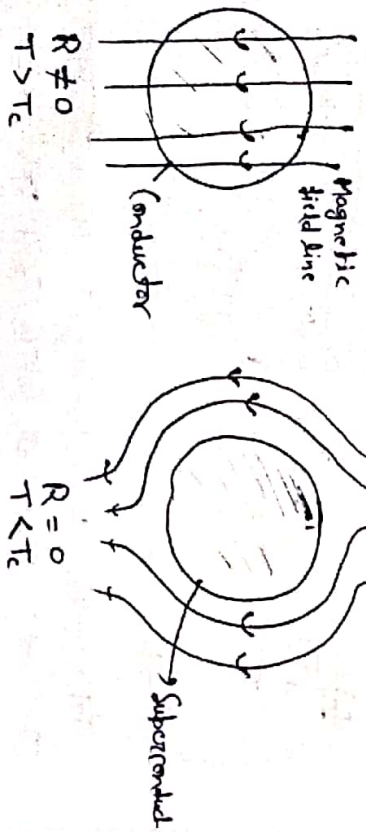 Magnetic
field line
Conductor
R ≠ 0
T > Tc
Superconduct
R = 0
T < Tc